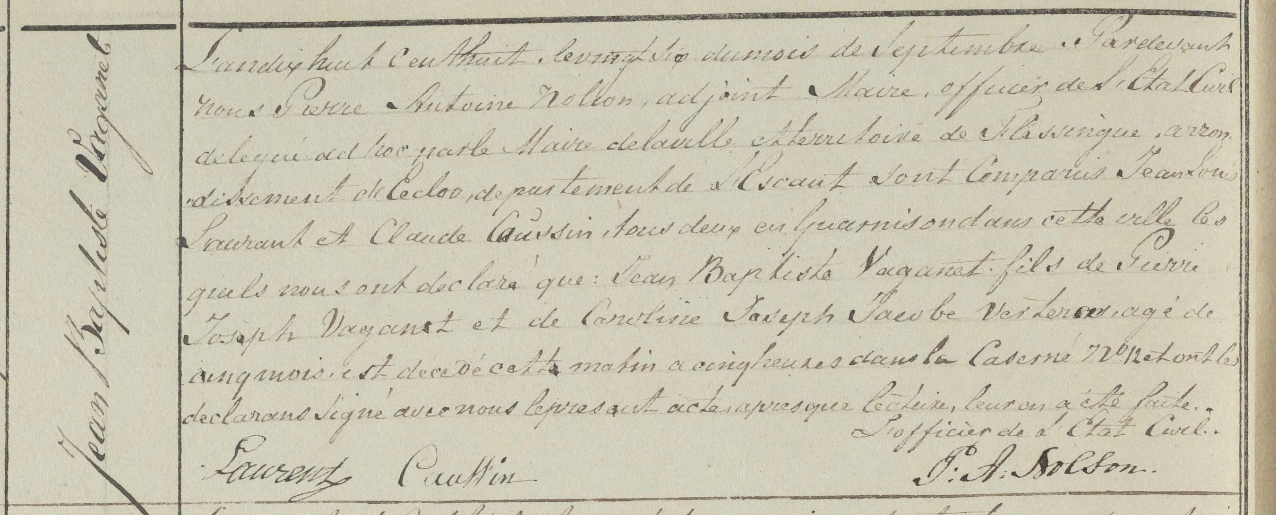 Jean Baptiste Vaganet
L'andixhuit centhuit, levingtsix dumois de Septembre. Pardevant
nous Pierre Antoine Nolson, adjoint Maire, officier de l'Etat Civil
delegué ad hoc parle Maire delaville etterritoire de Flessingue, arron
dissement d'Ecloo, departementde l'Escaut sont Comparus Jean Louis
Laurant et Claude Caussin, tous deux en Guarnisondans cette ville les
quels nous ont declaré que: Jean Baptiste Vaganet fils de Pierre
Joseph Vaganet et de Caroline Joseph Jacobe agé de
cinq mois, est decedé cette matin a cinq heures dans la Caserne No 12 et ont les
declarans Signé avec nous lepresent acte, apres que lecture, leur en a été faite.
L'officier de l'Etat Civil.
Laurent Caussin P. A. Nolson.